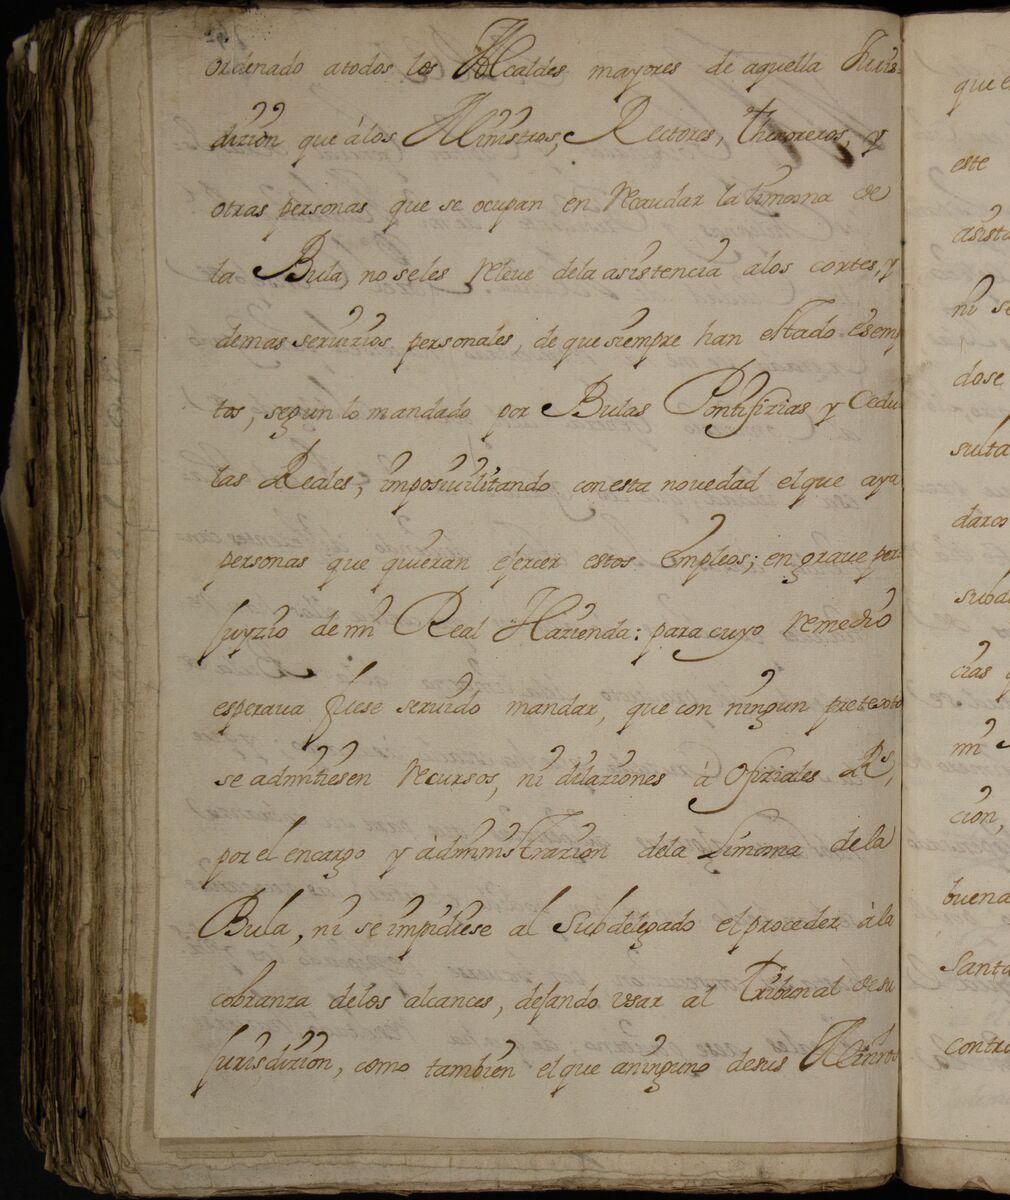 ordenado a todos los Alcaldes mayores de aquella Juris-
dizion que à los Ministros, Rectores, thesoreros, y
otras personas que se ocupan en recaudar la limosna de
la Bula, no seles releve dela asistencia alos cortes, y
demas servizios personales, de que siempre han estado esemp
tos, segun lo mandado por Bulas Pontifizias y Cedu-
las Reales, imposivilitando con esta novedad el que aya
personas que quieran ejercer estos empleos; en grave per-
juyzio de mi Real Hazienda: para cuyo remedio
esperava fuese servido mandar, que con ningun pretexto
se admitiesen recursos, ni dilaziones à Ofiziales Rs,
por el encargo y administrazion dela Limosna dela
Bula, ni se impidiese al Subdelegado el proceder à la
cobranza delos alcances, dejando usar al Tribunal de su
jurisdizion, como tambien el que aninguno desus Minros
que e
este
asista
ni se
dose
sulta
daros
subde
cias q
mi
cion,
buena
Santa
contra